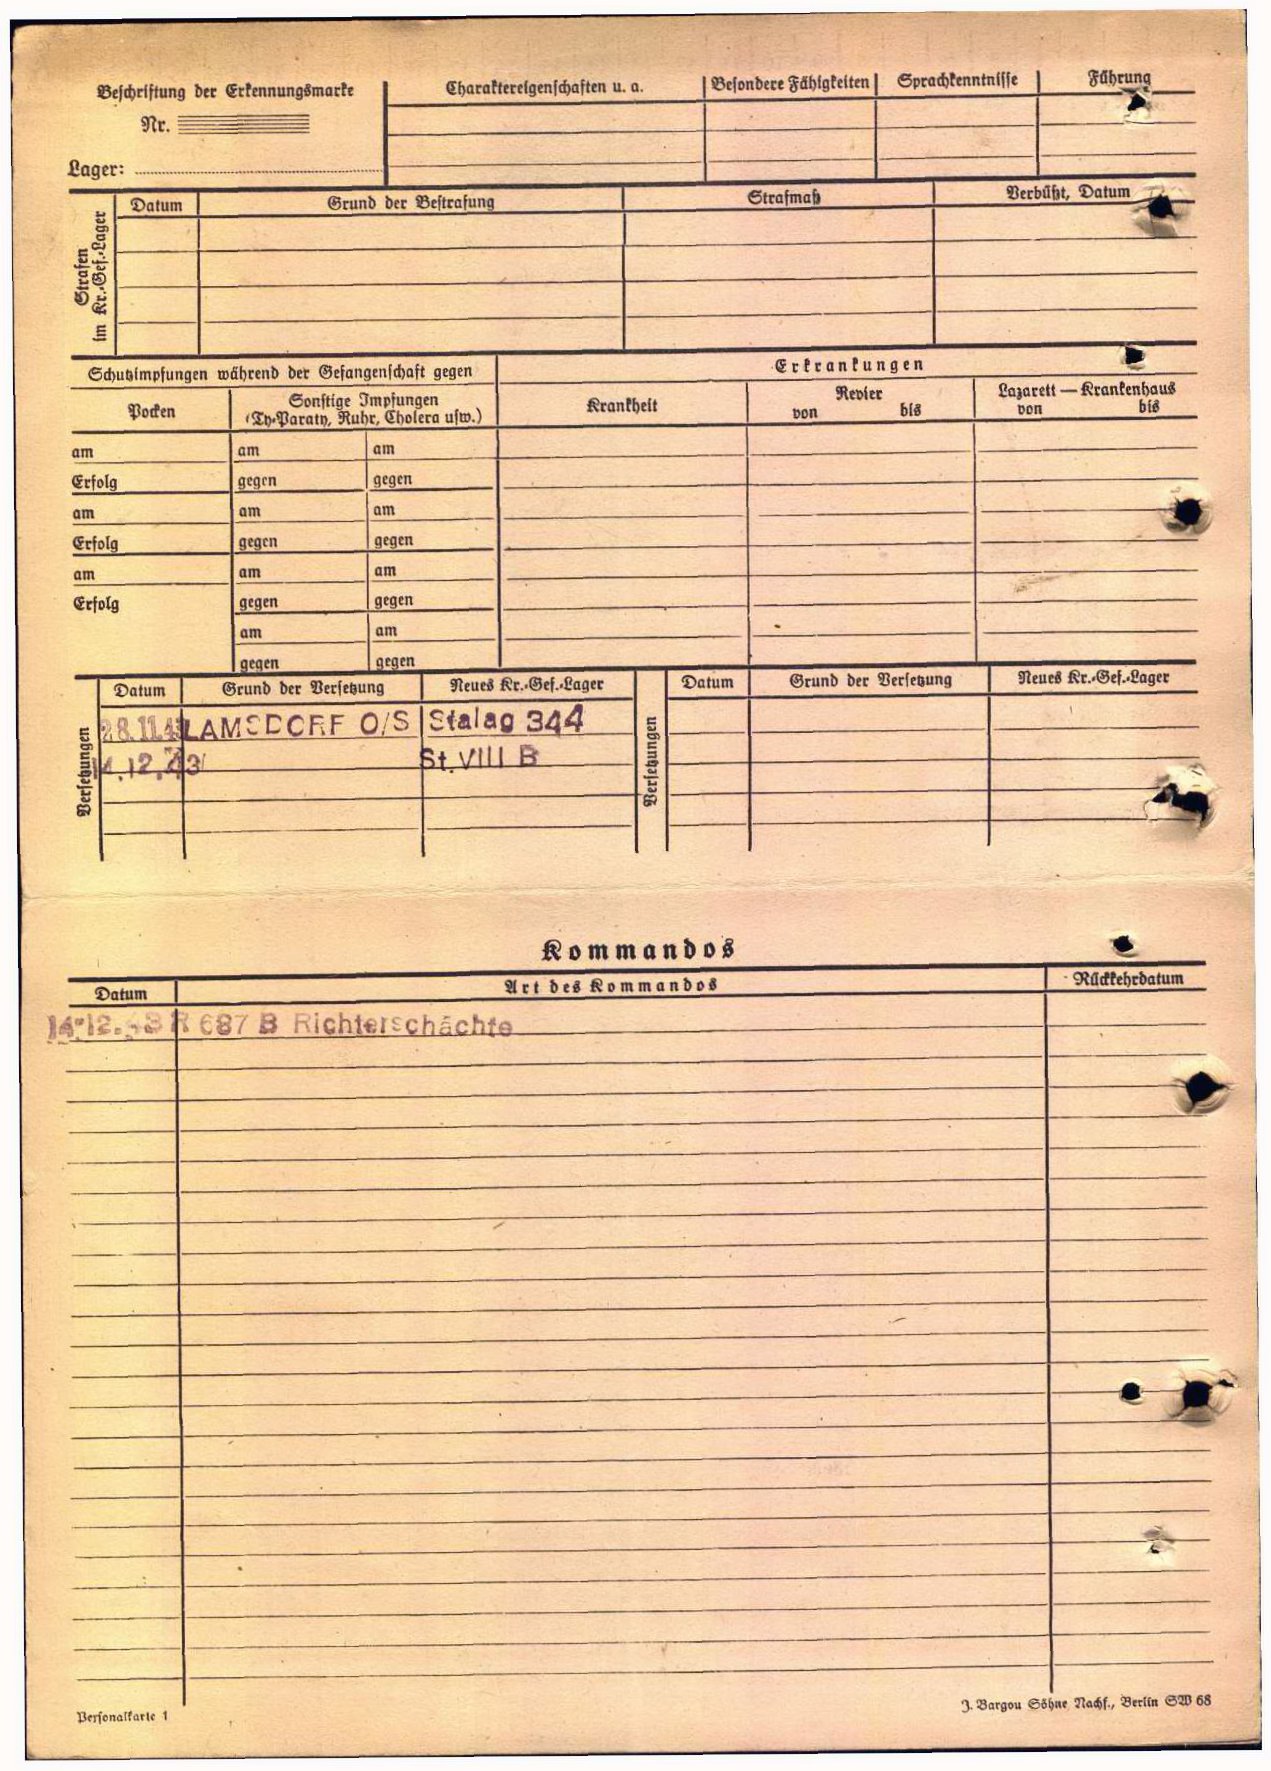 Beschriftung der Erkennungsmarke
Nr.
Lager:
Charaktereigenschaften u. a.
Besondere Fähigkeiten
Sprachkenntnisse
Führung
Strafen
im Kr.-Gef.-Lager
Datum
Grund der Bestrafung
Strafmaß
Verbüßt, Datum
Schutzimpfungen während der Gefangenschaft gegen
Erkrankungen
Pocken
Sonstige Impfungen
(Ty-Paraty, Ruhr, Cholera usw.)
Krankheit
Revier
von bis
Lazarett — Krankenhaus
von bis
am am am
Erfolg gegen gegen
am am am
Erfolg gegen gegen
am am am
Erfolg gegen gegen
am am
gegen gegen
Versetzungen
Datum Grund der Versetzung Neues Kr.-Gef.-Lager
28.11.43 LAMSDORF O/S Stalag 344
14.12.43 St. VIII B
Versetzungen
Datum Grund der Versetzung Neues Kr.-Gef.-Lager
Kommandos
Datum Art des Kommandos Rückkehrdatum
14.12.43 R 687 B Richterschächte
Personalkarte 1
J. Bargou Söhne Nachf., Berlin SW 68